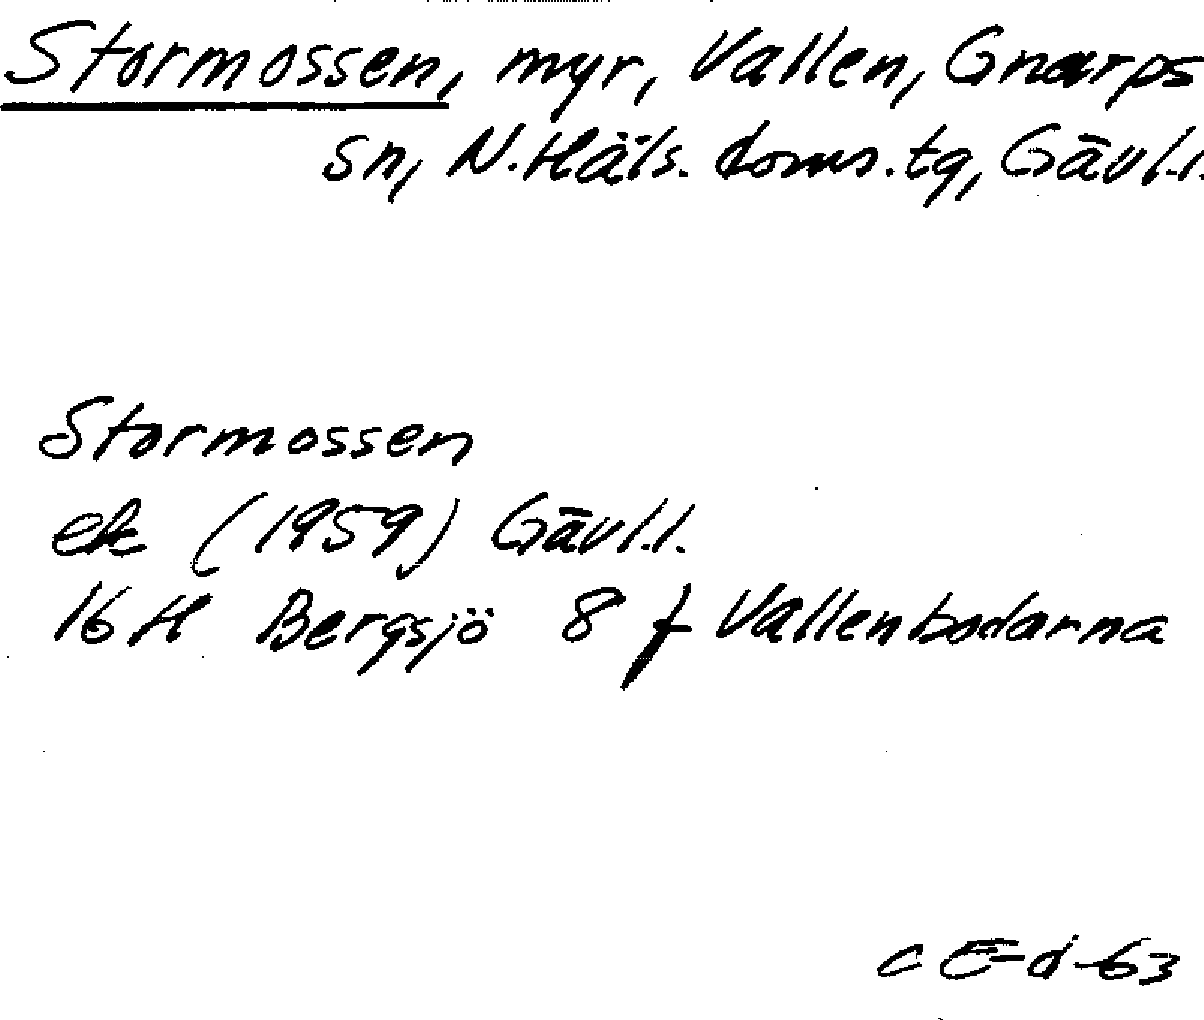 Stormossen, myr, Vallen, Gnarps
sn, N. Häls. doms. tg, Gävl.l.
Stormossen
ek (1959) Gävl.l.
16 H Bergsjö 8 f Vallenbodarna
C E-d -63